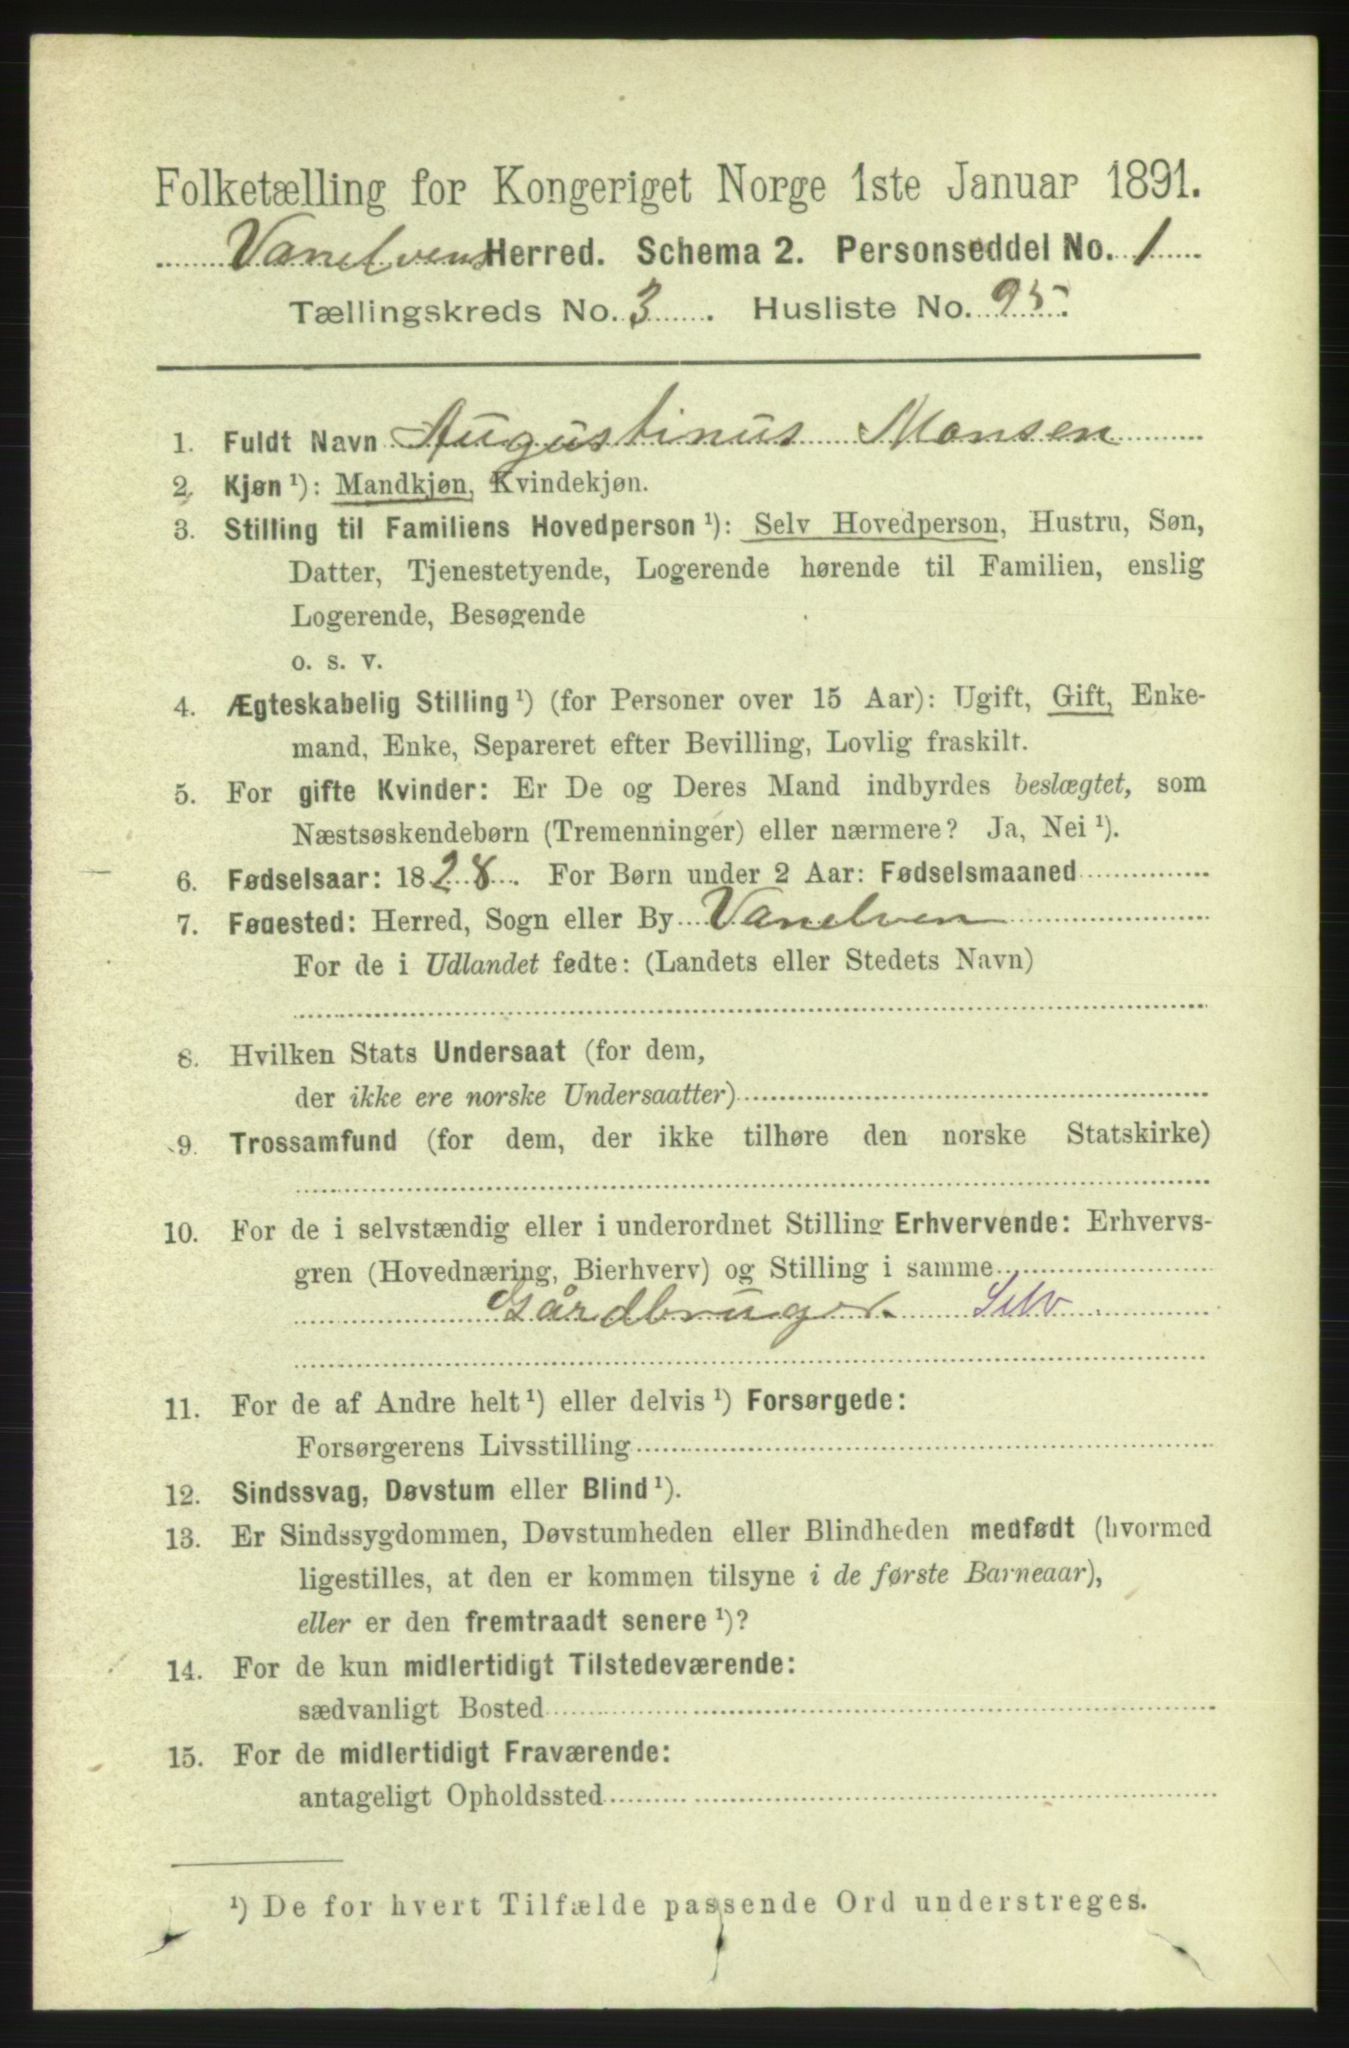 Folketælling for Kongeriget Norge 1ste Januar 1891.
Vanelvens Herred. Schema 2. Personseddel No. 1
Tællingskreds No. 3. Husliste No. 95.
1. Fuldt Navn Augustinus Monsen
2. Kjøn ¹): Mandkjøn, Kvindekjøn.
3. Stilling til Familiens Hovedperson ¹): Selv Hovedperson, Hustru, Søn,
Datter, Tjenestetyende, Logerende hørende til Familien, enslig
Logerende, Besøgende
o. s. v.
4. Ægteskabelig Stilling ¹) (for Personer over 15 Aar): Ugift, Gift, Enke-
mand, Enke, Separeret efter Bevilling, Lovlig fraskilt.
5. For gifte Kvinder: Er De og Deres Mand indbyrdes beslægtet, som
Næstsøskendebørn (Tremenninger) eller nærmere? Ja, Nei ¹).
6. Fødselsaar: 1828. For Børn under 2 Aar: Fødselsmaaned
7. Fødested: Herred, Sogn eller By Vanelven
For de i Udlandet fødte: (Landets eller Stedets Navn)
8. Hvilken Stats Undersaat (for dem,
der ikke ere norske Undersaatter)
9. Trossamfund (for dem, der ikke tilhøre den norske Statskirke)
10. For de i selvstændig eller i underordnet Stilling Erhvervende: Erhvervs-
gren (Hovednæring, Bierhverv) og Stilling i samme
Gårdbruger. Selv
11. For de af Andre helt ¹) eller delvis ¹) Forsørgede:
Forsørgerens Livsstilling
12. Sindssvag, Døvstum eller Blind ¹).
13. Er Sindssygdommen, Døvstumheden eller Blindheden medfødt (hvormed
ligestilles, at den er kommen tilsyne i de første Barneaar),
eller er den fremtraadt senere ¹)?
14. For de kun midlertidigt Tilstedeværende:
sædvanligt Bosted
15. For de midlertidigt Fraværende:
antageligt Opholdssted
¹) De for hvert Tilfælde passende Ord understreges.